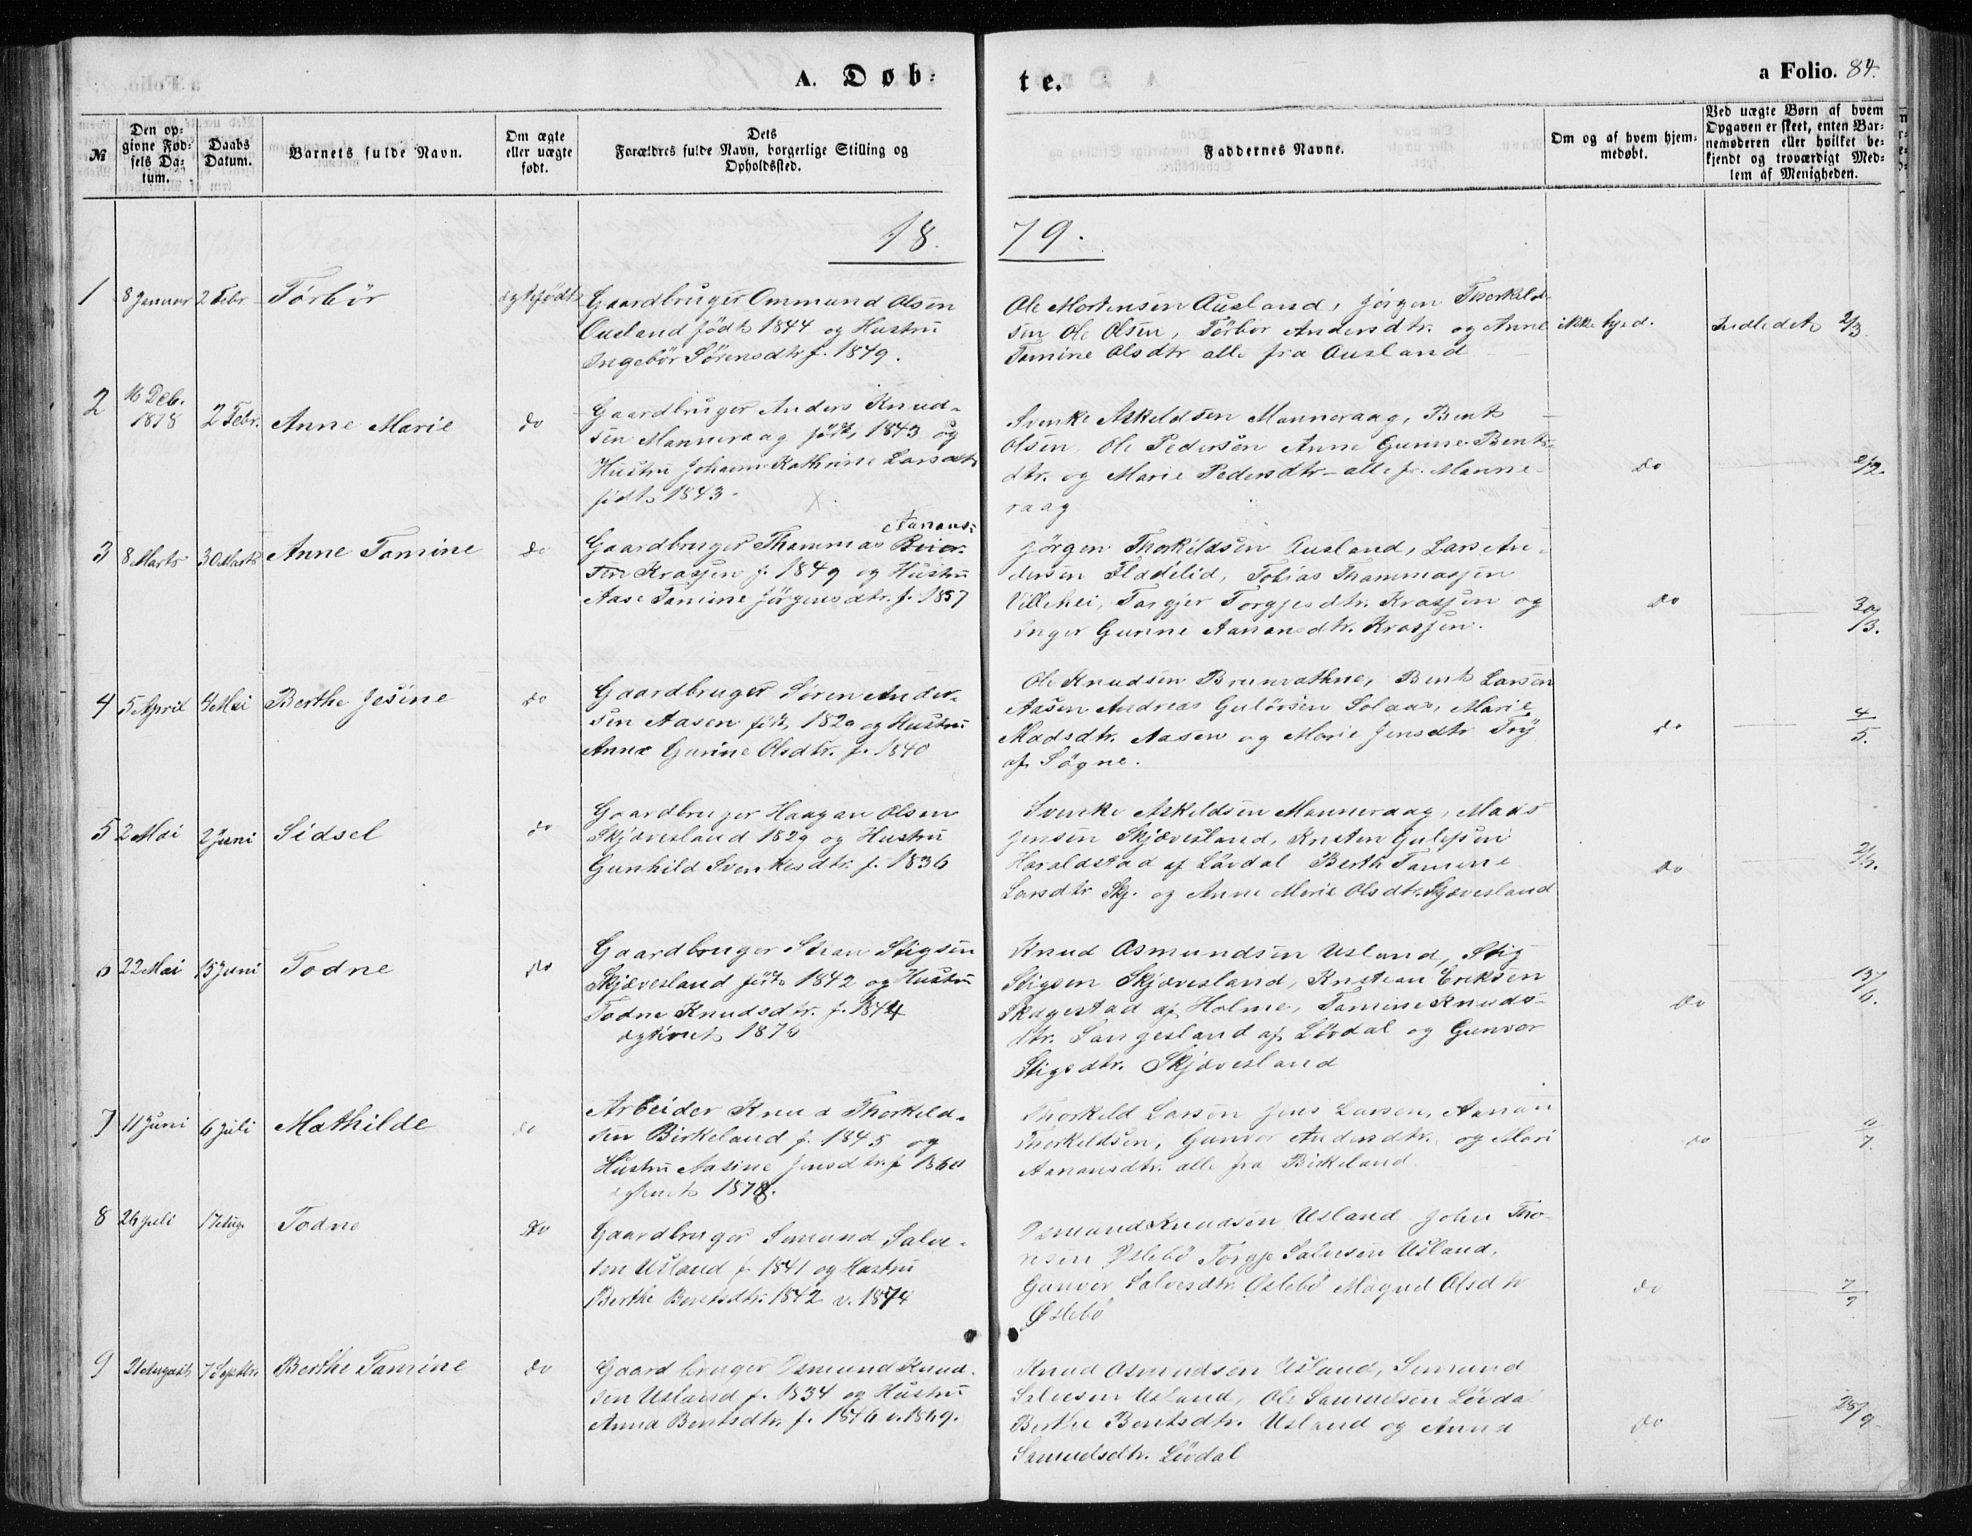 A. Døb-
te.
a Folio. 84.
№
Den op-
givne Fød-
sels Da-
tum.
Daabs
Datum.
Barnets fulde Navn.
Om ægte
eller uægte
født.
Dets
Forældres fulde Navn, borgerlige Stilling og
Opholdssted.
Faddernes Navne.
Om og af hvem hjem-
medøbt.
Ved uægte Børn af hvem
Opgaven er skeet, enten Bar-
nemoderen eller hvilket be-
kjendt og troværdigt Med-
lem af Menigheden.
18. 79.
1 8 Januar 2 Febr. Törbör ægtefødt
Gaardbruger Ommund Olsen
Ausland født 1844 og Hustru
Ingebör Sörensdtr f. 1849.
Ole Mortensen Ausland, Jörgen Thorkild-
sen Ole Olsen, Törbor Andersdtr. og Anne
Tomine Olsdtr alle fra Ausland
ikke hjed. Indledet 2/3.
2 16 Deb. 1878 2 Febr. Anne Marie do
Gaardbruger Anders Knud-
sen Manneraag født 1843 og
Hustru Johanne Kathrine Larsdtr
født 1843.
Svenke Askeldsen Manneraag, Bent
Olsen, Ole Pedersen Anne Gurine Bents-
dtr. og Marie Pedersdtr alle fr. Manne-
raag
do 2/2.
3 8 Marts 30 Marts Anne Tomine do
Aanons-
Gaardbruger Thommas
sen Krossen f. 1849 og Hustru
Aase Tomine Jörgensdtr. f. 1857
Jörgen Thorkildsen Ausland, Lars An-
dersen Flödelid, Tobias Thommassen
Villehei, Torgjer Torgjesdtr. Krossen og
Inger Gurine Aanonsdtr. Krossen.
do 30/3.
4 5 April 4 Mai Berthe Jesine do
Gaardbruger Sören Ander-
sen Aasen født 1820 og Hustru
Anne Gurine Olsdtr. f. 1840
Ole Knudsen Brunvathne, Bent Larsen
Aasen Andreas Gulövsen Solaas, Marie
Madsdtr. Aasen og Marie Jensdtr Try
af Søgne.
do 4/5.
5 2 Mai 2 Juni Sidsel do
Gaardbruger Haagan Olsen
Skjævesland 1829 og Hustru
Gunhild Svenkesdtr. f. 1836
Svenke Askeldsen Manneraag, Mads
Jensen Skjævesland, Kristen Gulefsen
Haraldstad af Lövdal Berth Tomine
Larsdtr Skj. og Anne Marie Olsdtr. Skjævesland
do 2/6.
6 22 Mai 15 Juni Todne do
Gaardbruger Stian Stigsen
Skjævesland født 1842 og Hustru
Todne Knudsdtr. f. 1844
ægteviet 1876
Knud Osmundsen Usland, Stig
Stigsen Skjævesland, Kristian Eriksen
Skagestad af Holme, Tomine Knuds-
dtr. Sangesland af Lövdal og Gunvor
Stigsdtr. Skjævesland
do 15/6.
7 11 Juni 6 Juli Mathilde do
Arbeider Knud Thorkild-
sen Birkeland f. 1845 og
Hustru Aasine Jensdtr. f 1860
ægteviet 1878.
Thorkild Larsen Jens Larsen, Aanon
Thorkildsen, Gunvor Andersdtr. og Mari
Aanonsdtr. alle fra Birkeland.
do 6/7.
8 26 Juli 17 Aug. Todne do
Gaardbruger Semund Salve-
sen Usland f 1841 og Hustru
Berthe Bentsdtr. 1842 v. 1874
Osmund Knudsen Usland John Tho-
resen Øslebö Torgje Salvesen Usland,
Gunvor Salvesdtr. Oslebö Magnil Olsdtr
Øslebö
do 7/9
9 21 August 7 Septbr. Berthe Tomine do
Gaardbruger Osmund Knud-
sen Usland f. 1834 og Hustru
Anna Bentsdtr. f. 1846 v. 1869.
Knud Osmundsen Usland, Semund
Salvesen Usland, Ole Samuelsen Lövdal
Berthe Bentsdtr. Usland og Anna
Samuelsdtr. Lövdal
do 28/9